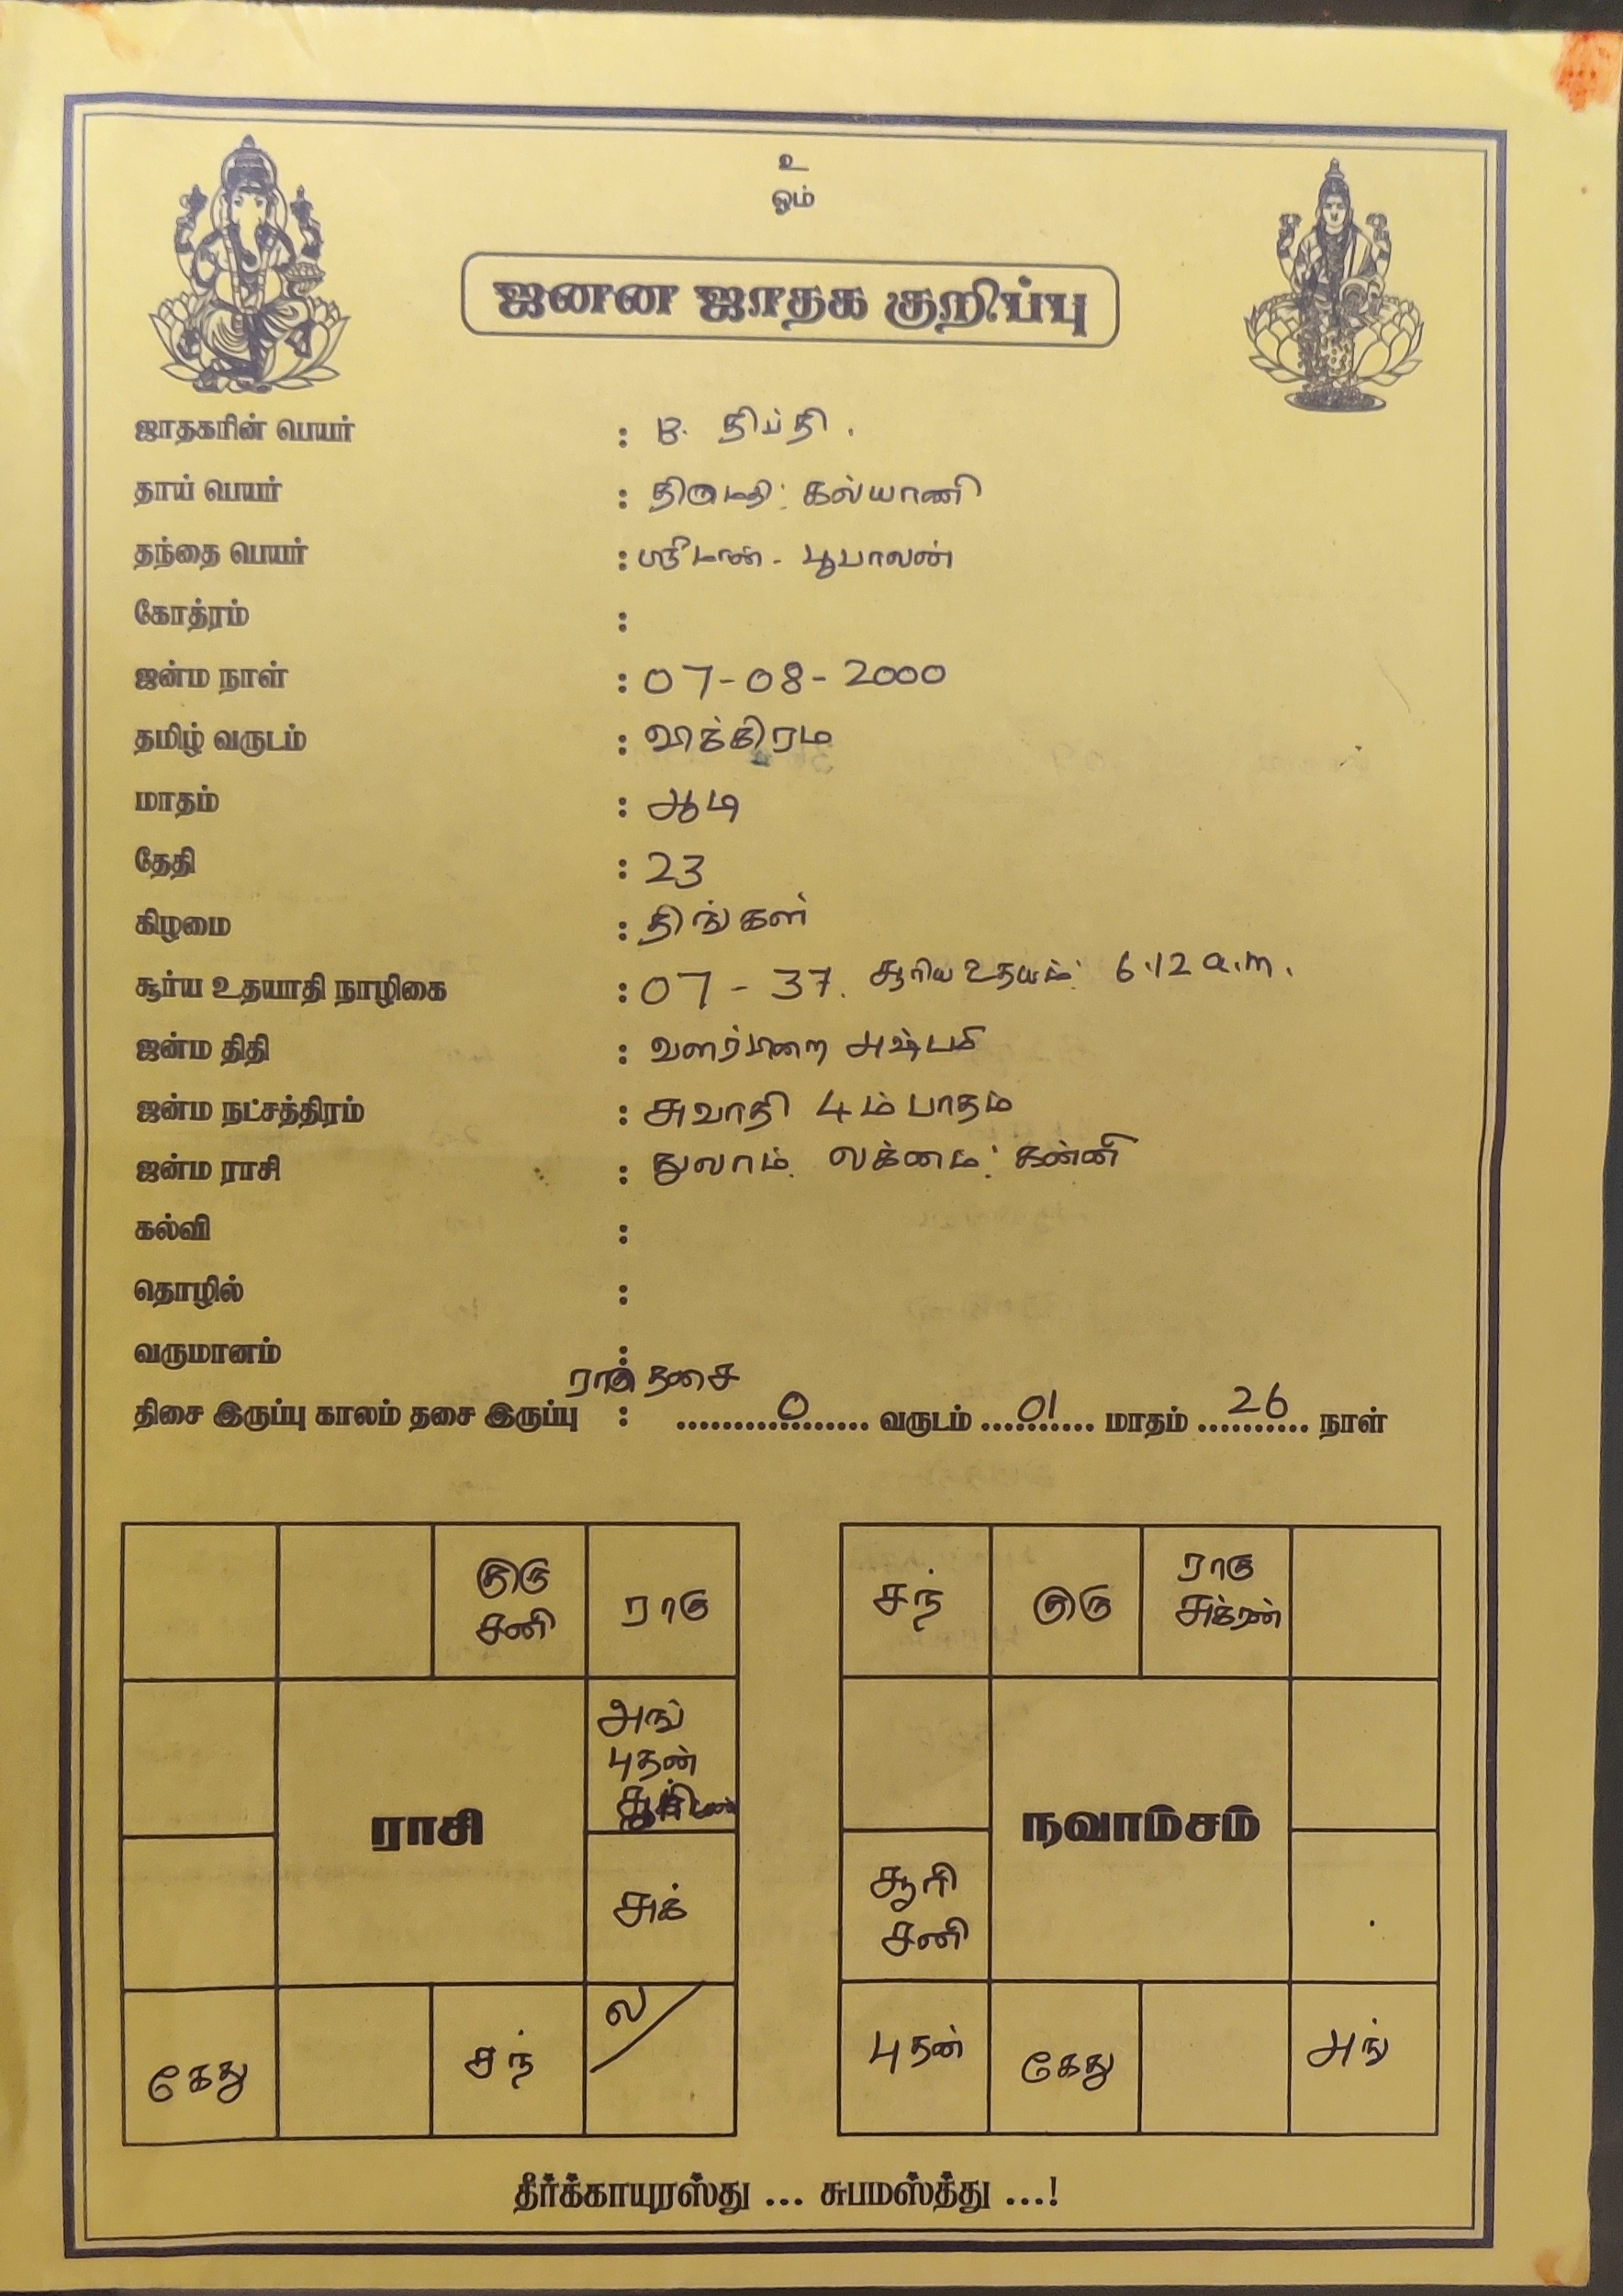 உ
ஓம்
ஜனன ஜாதக குறிப்பு
ஜாதகரின் பெயர் : B. திப்தி.
தாய் பெயர் : திருமதி: கல்யாணி
தந்தை பெயர் : ஸ்ரீமான். பூபாலன்
கோத்ரம் :
ஜன்ம நாள் : 07-08-2000
தமிழ் வருடம் : விக்கிரம
மாதம் : ஆடி
தேதி : 23
கிழமை : திங்கள்
சூர்ய உதயாதி நாழிகை : 07-37. சூரிய உதயம்: 6.12 a.m.
ஜன்ம திதி : வளர்பிறை அஷ்டமி
ஜன்ம நட்சத்திரம் : சுவாதி 4ம் பாதம்
ஜன்ம ராசி : துலாம். லக்னம்: கன்னி
கல்வி :
தொழில் :
வருமானம் :
ராகு தசை
திசை இருப்பு காலம் தசை இருப்பு : ........0........ வருடம் ....01.... மாதம் ....26.... நாள்
குரு
சனி
ராகு
அங்
புதன்
ராசி
சுக்
கேது
சந்
ல/
சந்
குரு
ராகு
சுக்ரன்
நவாம்சம்
சூரி
சனி
புதன்
கேது
அங்
தீர்க்காயுரஸ்து ... சுபமஸ்த்து ...!